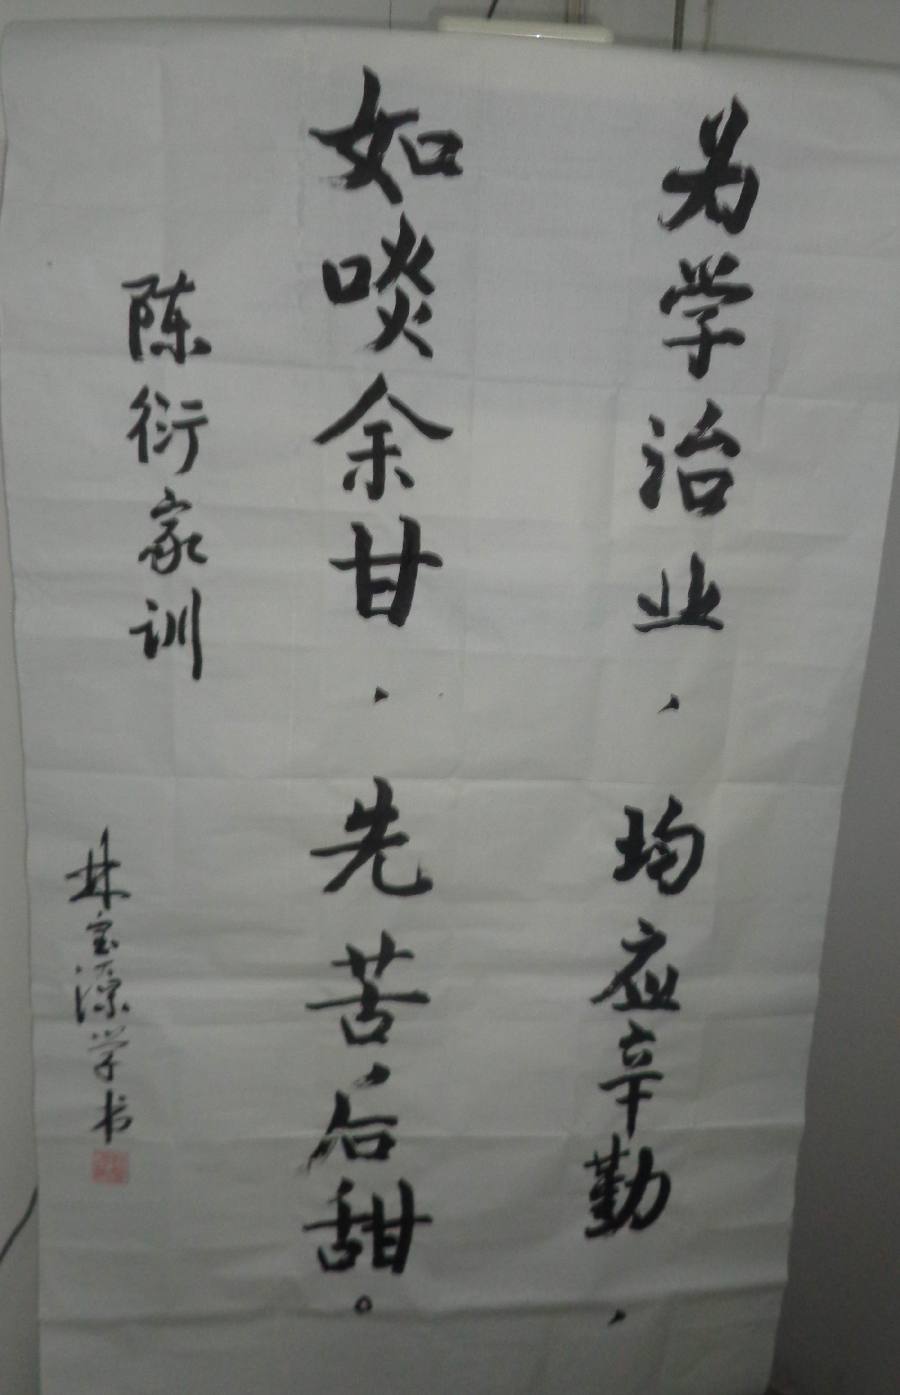 为学治业，均应辛勤，
如啖余甘，先苦后甜。
陈衍家训
林宝源学书